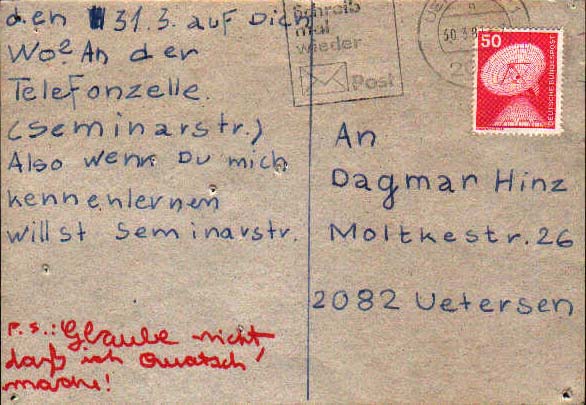 den 31.3. auf Dich
Wo? An der
Telefonzelle.
(Seminarstr.)
Also wenn Du mich
kennenlernen
willst Seminarstr.
P.S.: Glaube nicht
daß ich Quatsch
mache!
Schreib
mal
wieder
Post
50
DEUTSCHE BUNDESPOST
An
Dagmar Hinz
Moltkestr. 26
2082 Uetersen